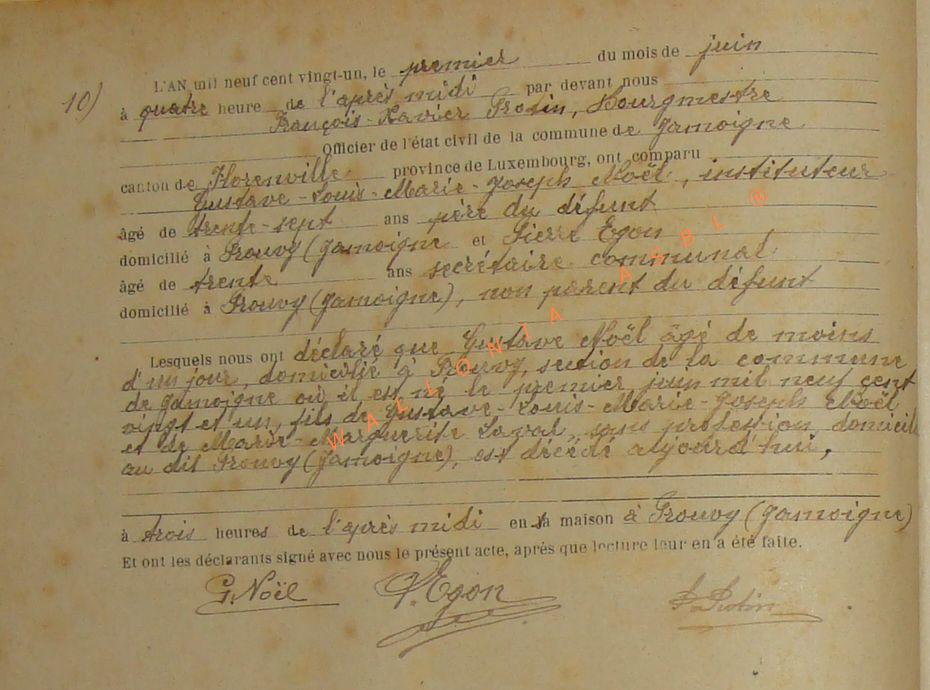 10)
L'AN mil neuf cent vingt-un, le premier du mois de juin
à quatre heure de l'après midi par devant nous
François-Xavier Protin, Bourgmestre
Officier de l'état civil de la commune de Jamoigne
canton de Florenville province de Luxembourg, ont comparu
Gustave-Louis-Marie-Joseph Noël, instituteur
âgé de trente-sept ans père du défunt
domicilié à Prouvy (Jamoigne et Pierre Egon
âgé de trente ans secrétaire communal
domicilié à Prouvy (Jamoigne), non parent du défunt
Lesquels nous ont déclaré que Gustave Noël âgé de moins
d'un jour, domicilié à Prouvy, section de la commune
de Jamoigne où il est né le premier juin mil neuf cent
vingt et un, fils de Gustave-Louis-Marie-Joseph Noël
et de Marie-Marguerite Laval, sans profession, domicilié
au dit Prouvy (Jamoigne), est décédé aujourd'hui,
à trois heures de l'après midi en sa maison à Prouvy (Jamoigne)
Et ont les déclarants signé avec nous le présent acte, après que lecture leur en a été faite.
G. Noël P. Egon Protin
WALLONIA ASBL ®